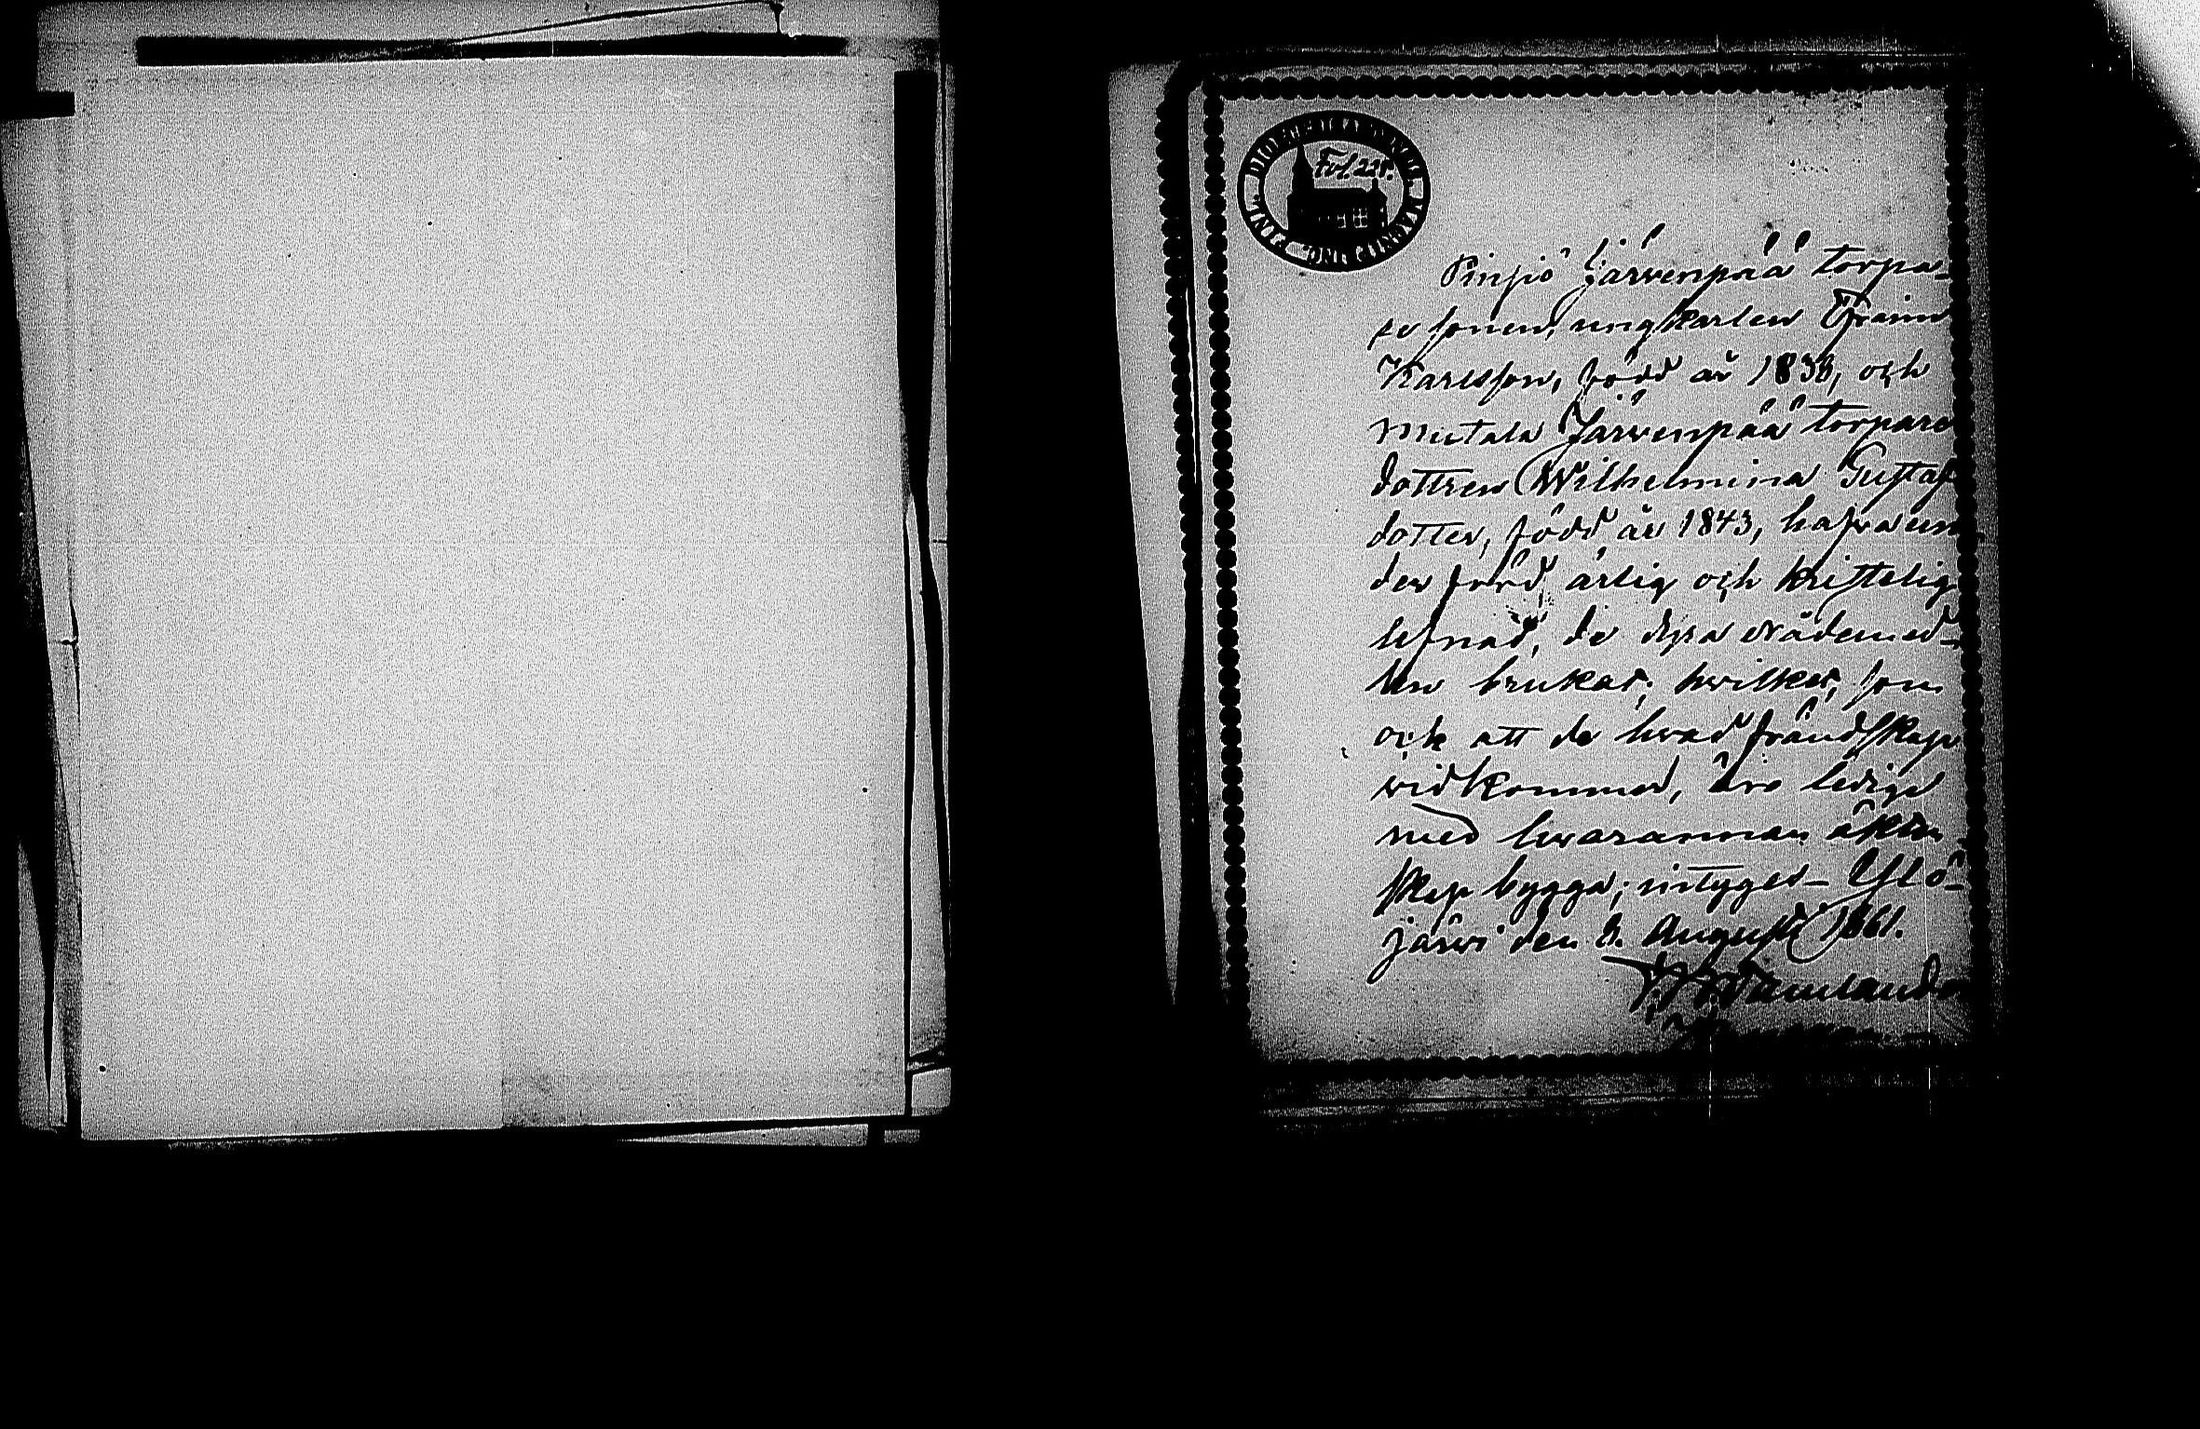 Fol. 229.
Pinsiö Järvenpää torpa-
re sonen, ungkarlen Frans
Karlsson, född år 1838, och
Mutala Järvenpää torpare
dottren Wilhelmina Gustafs
dotter, född år 1843, hafva un
der förd ärlig och kristelig
lefnad, de dyra nådemed-
len brukat; hvilket, som
ock att de hvad frändskap
vidkommer, äro ledige
med hvarannan äkten
skap bygga, intygar – Ylö-
järvi den 8. Augusti 1861.